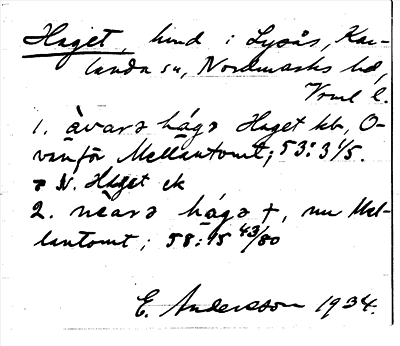 Haget, hmd i Lysås, Kar-
landa sn, Nordmarks hd,
Vrml l.
1. åvarə hágə Haget kb, O-
vanför Mellantomt; 53: 3 1/5.
N. Haget ek
2. nèarə hágə +, nu Mel-
lantomt; 58: 15 43/80
E. Andersson 1934.